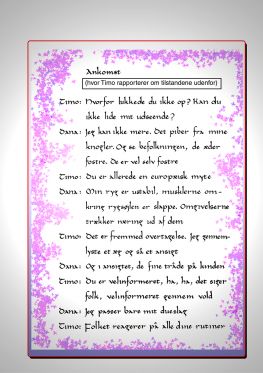 Ankomst
(hvor Timo rapporterer om tilstandene udenfor)
Timo: Hvorfor lukkede du ikke op? Kan du
ikke lide mit udseende?
Dana: Jeg kan ikke mere. Det piber fra mine
knogler. Og se befolkningen, de æder
fostre, de er vel selv fostre
Timo: Du er allerede en europæisk myte
Dana: Min ryg er ustabil, musklerne om-
kring rygsøjlen er slappe. Omgivelserne
trækker næring ud af dem
Timo: Det er fremmed overtagelse. Jeg gennem-
lyste et æg og så et ansigt
Dana: Og i ansigtet, de fine tråde på kinden
Timo: Du er velinformeret, ha, ha, det siger
folk, velinformeret gennem vold
Dana: Jeg passer bare mit dueslag
Timo: Folket reagerer på alle dine rutiner